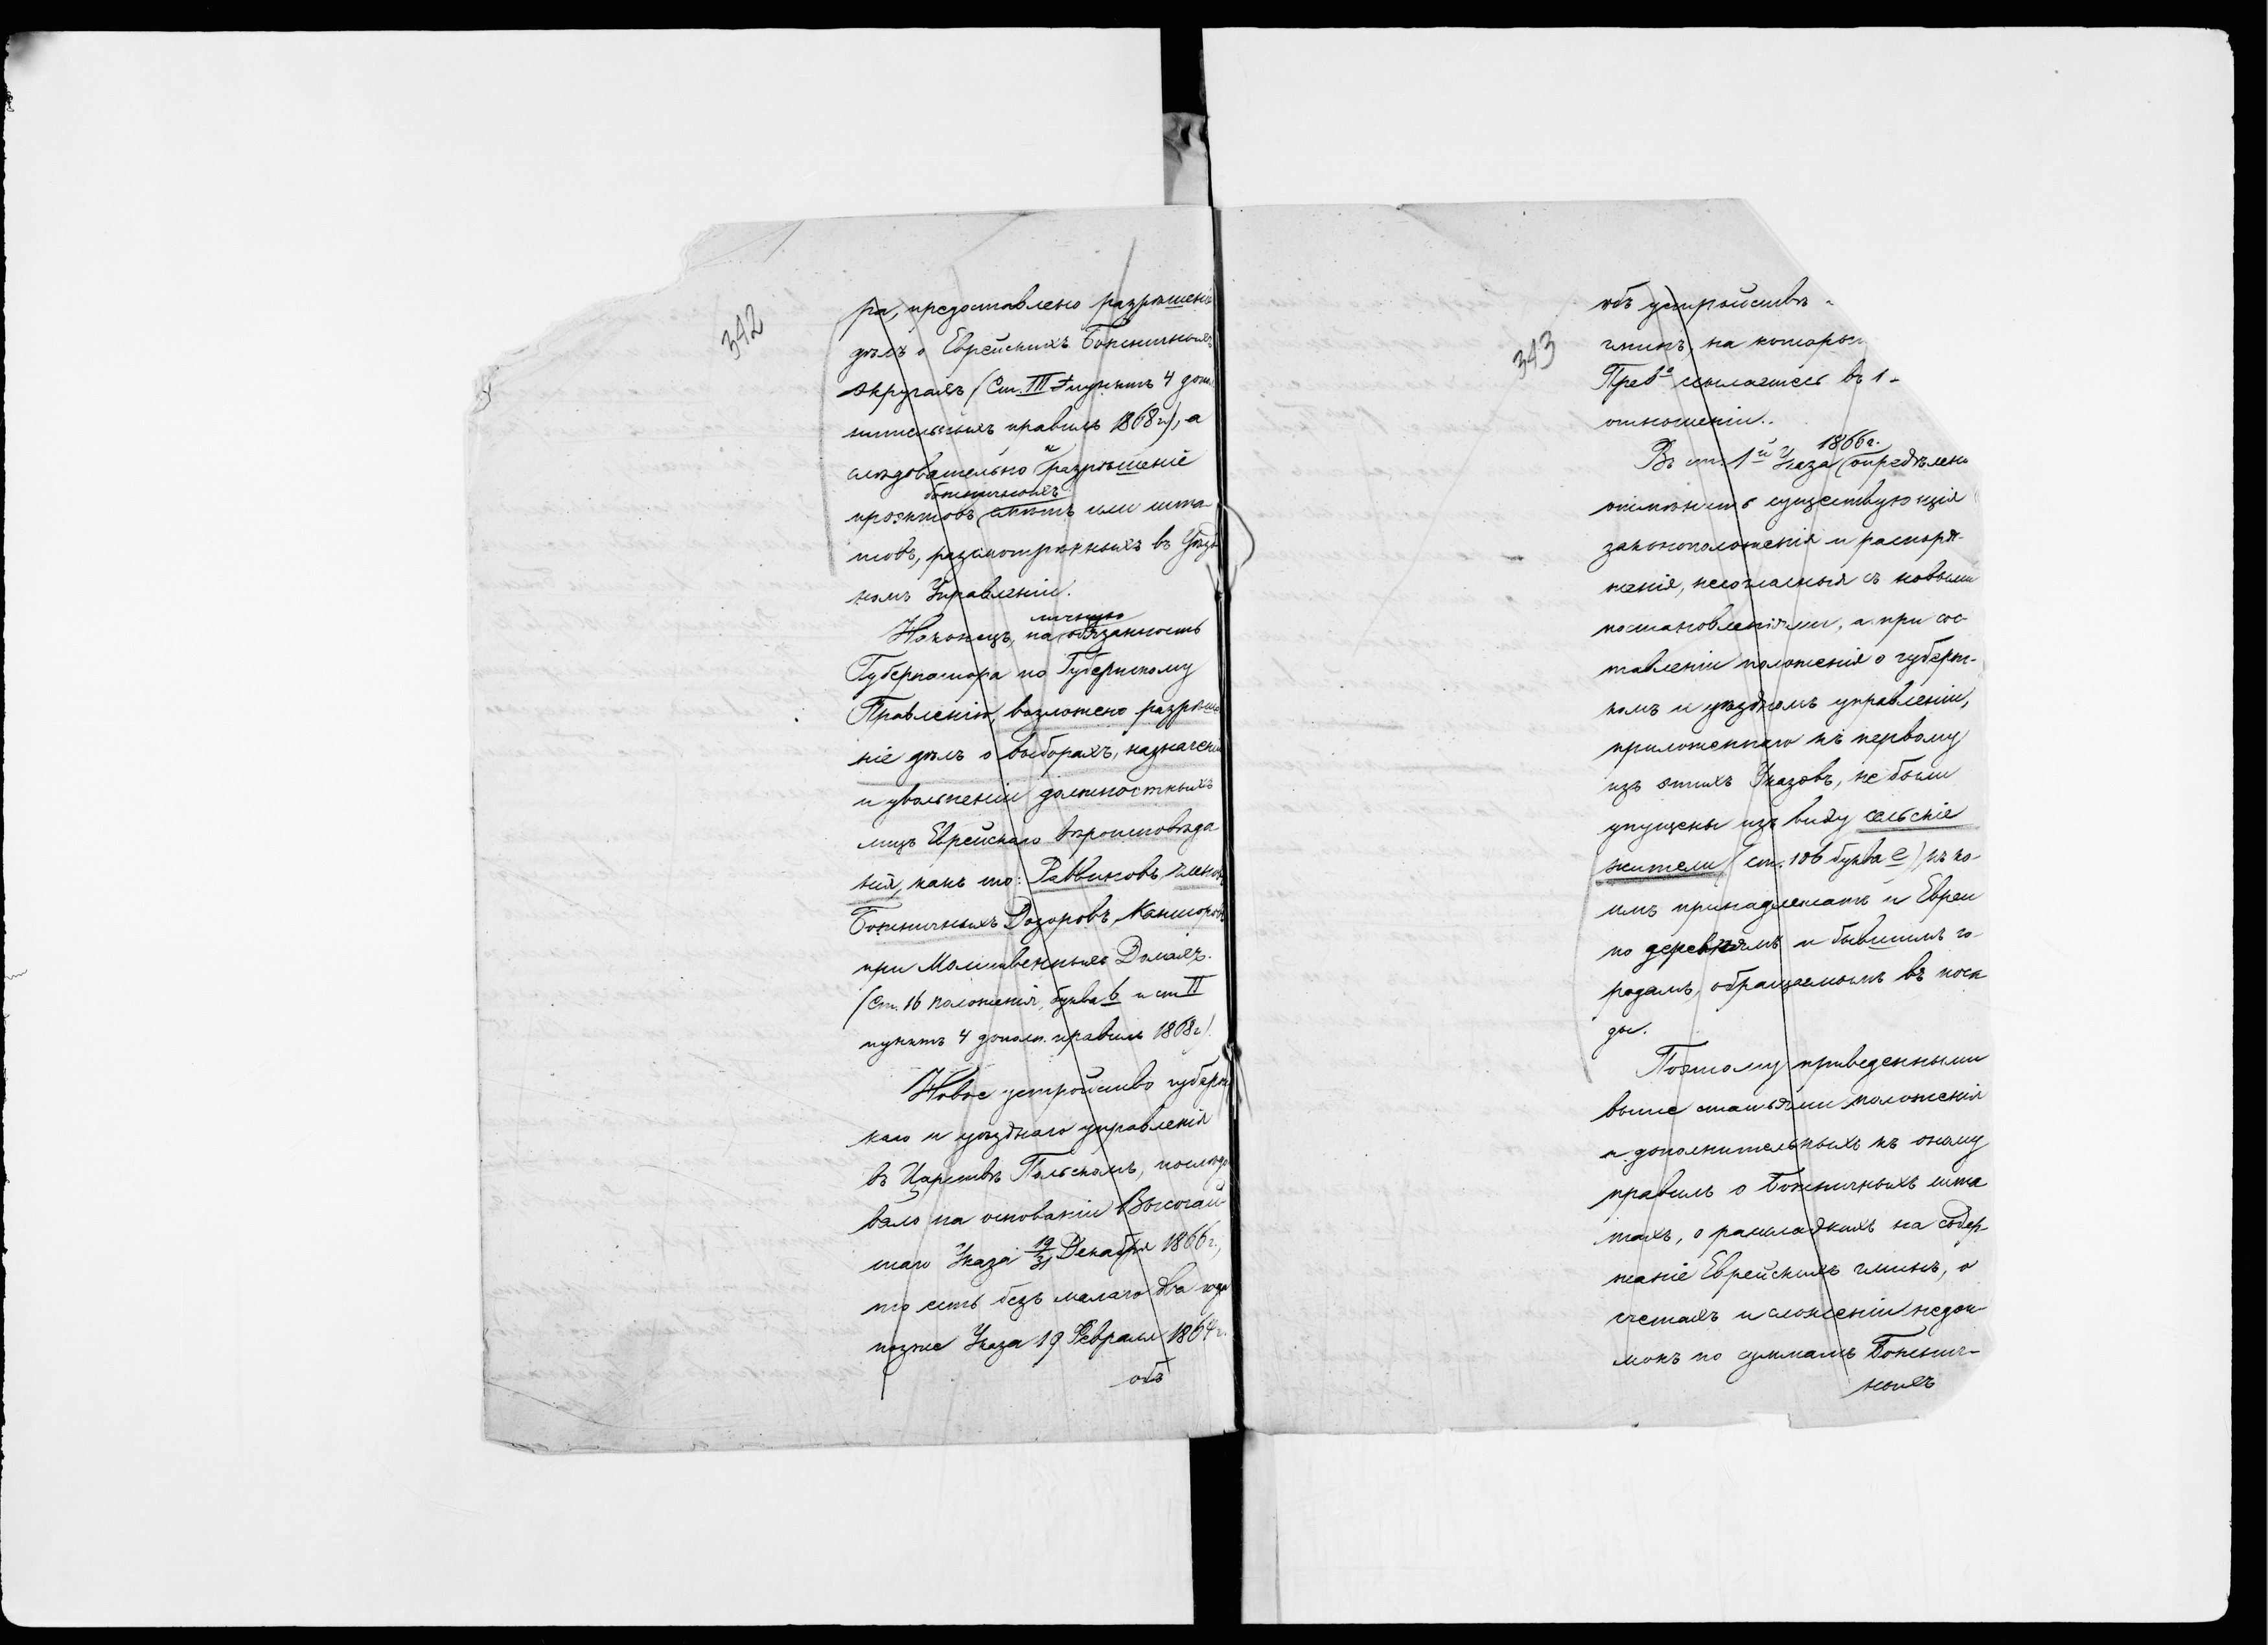 342
ра, предоставлено разрѣшеніе
дѣлъ о Еврейскихъ Божничныхъ
округахъ (Ст. III пунктъ 4 допол
нительныхъ правилъ 1868 г), а
слѣдовательно и разрѣшеніе
божничныхъ
проэктовъ или шта-
товъ, разсмотрѣнныхъ въ Уѣзд
номъ Управленіи.
личную
Наконецъ, на обязанность
Губернатора по Губернскому
Правленію, возложено разрѣше
ніе дѣлъ о выборахъ, назначеніи
и увольненіи должностныхъ
лицъ Еврейскаго вѣроисповѣда
нія, какъ то: Раввиновъ, Членовъ
Божничныхъ Дозоровъ, Канторовъ
при Молитвенныхъ Домахъ.
(Ст. 16 положенія, буква в и ст II
пунктъ 4 дополн. правилъ 1868 г)
Новое устройство губернс
каго и уѣзднаго управленія
въ Царствѣ Польскомъ, послѣдо
вало на основаніи Высочай-
шаго Указа 19/31 Декабря 1866 г.,
то есть безъ малаго два года
позже Указа 19 Февраля 1864 г.
объ
343
объ устройствѣ
гминъ, на которы
Прев-о ссылаетесь въ 1-
отношеніи.
1866 г.
Въ ст. 1й Указа опредѣлено
отмѣнить существующія
законоположенія и распоря-
женія, несогласныя съ новыми
постановленіями, а при сос-
тавленіи положенія о губернс-
комъ и уѣздномъ управленіи,
приложеннаго къ первому
изъ этихъ Указовъ, не были
упущены изъ виду сельскіе
жители (ст. 106 буква е) къ ко-
имъ принадлежатъ и Евреи
по деревнямъ и бывшимъ го-
родамъ, обращаемымъ въ поса
ды.
Поэтому приведенными
выше статьями положенія
и дополнительныхъ къ оному
правилъ о Божничныхъ шта
тахъ, о раскладкахъ на содер-
жаніе Еврейскихъ гминъ, о
счетахъ и сложеніи недои-
мокъ по суммамъ Божнич-
ныхъ